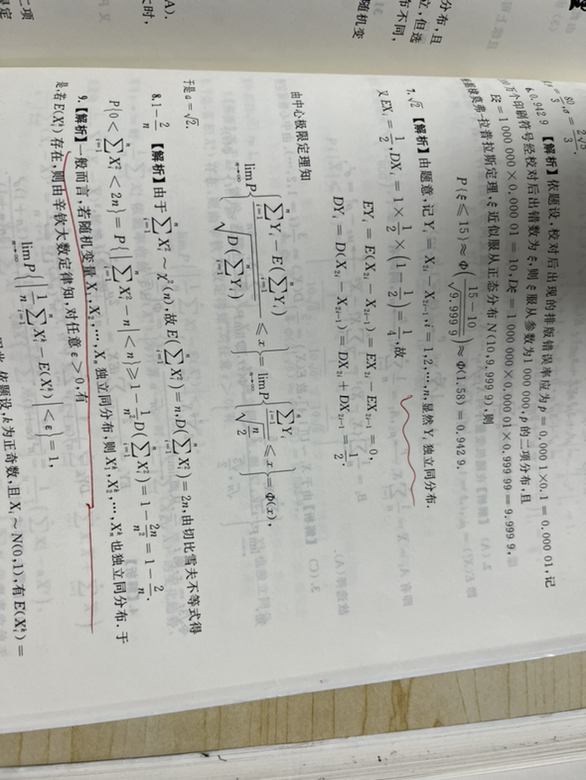 6. 0.942 9 【解析】依题设,校对后出现的排版错误率应为p=0.000 1×0.1=0.000 01,记
万个印刷符号经校对后出错数为ξ,则ξ服从参数为1 000 000,p的二项分布,且
Eξ=1 000 000×0.000 01=10,Dξ=1 000 000×0.000 01×0.999 99=9.999 9,
莫弗-拉普拉斯定理,ξ近似服从正态分布N(10,9.999 9),则
P{ξ≤15}≈Φ(15-10/√9.999 9)≈Φ(1.58)=0.942 9.
7. √2 【解析】由题意,记Y_i=X_{2i}-X_{2i-1},i=1,2,…,n,显然Y_i独立同分布.
又EX_i=1/2,DX_i=1×1/2×(1-1/2)=1/4,故
EY_i=E(X_{2i}-X_{2i-1})=EX_{2i}-EX_{2i-1}=0,
DY_i=D(X_{2i}-X_{2i-1})=DX_{2i}+DX_{2i-1}=1/2.
由中心极限定理知
lim_{n→∞}P{(∑_{i=1}^n Y_i-E(∑_{i=1}^n Y_i))/√D(∑_{i=1}^n Y_i)≤x}=lim_{n→∞}P{∑_{i=1}^n Y_i/√(n/2)≤x}=Φ(x),
于是a=√2.
8. 1-2/n 【解析】由于∑_{i=1}^n X_i^2~χ^2(n),故E(∑_{i=1}^n X_i^2)=n,D(∑_{i=1}^n X_i^2)=2n,由切比雪夫不等式得
P{0<∑_{i=1}^n X_i^2<2n}=P{|∑_{i=1}^n X_i^2-n|<n}≥1-1/n^2 D(∑_{i=1}^n X_i^2)=1-2n/n^2=1-2/n.
9. 【解析】一般而言,若随机变量X_1,X_2,…,X_n独立同分布,则X_1^k,X_2^k,…,X_n^k也独立同分布.于
是若E(X_i^k)存在,则由辛钦大数定律知,对任意ε>0,有
lim_{n→∞}P{|1/n∑_{i=1}^n X_i^k-E(X_i^k)|<ε}=1,
依题设,k为正奇数,且X_i~N(0,1),有E(X_i^k)=